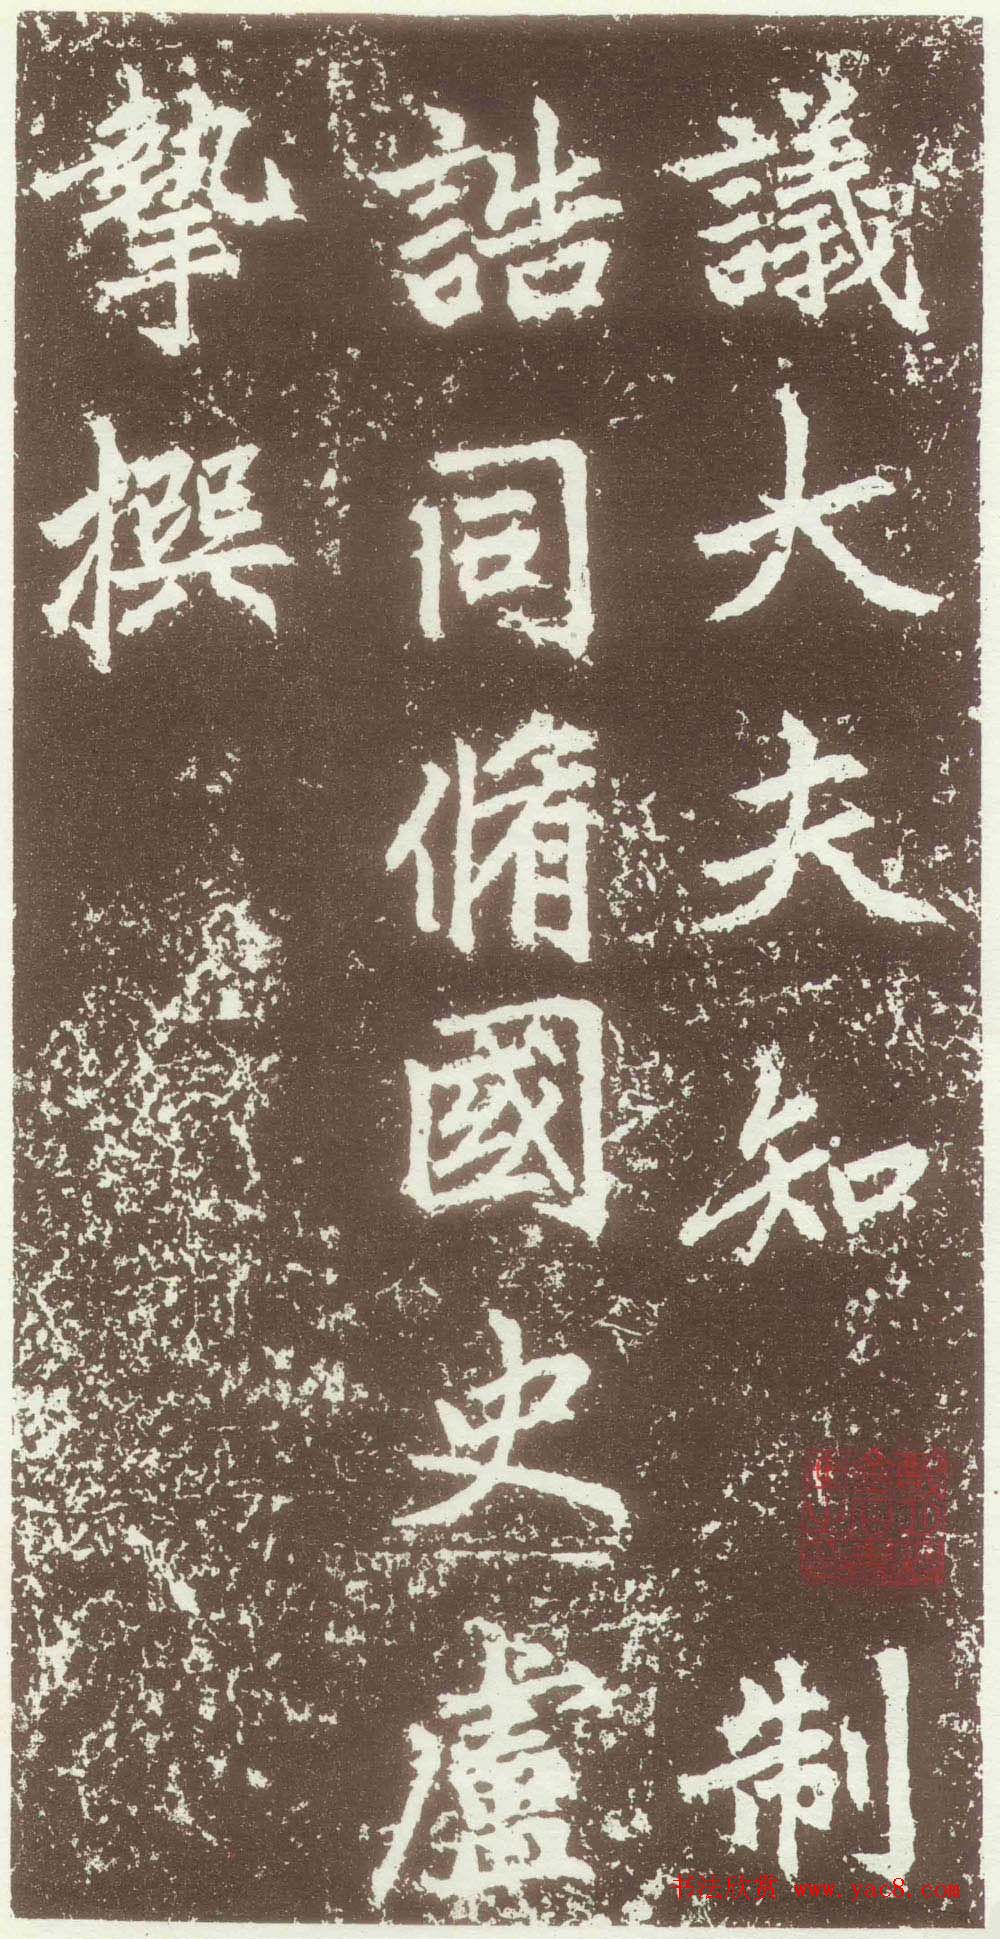 議大夫知制
誥同脩國史盧
摯撰
书法欣赏 www.yac8.com